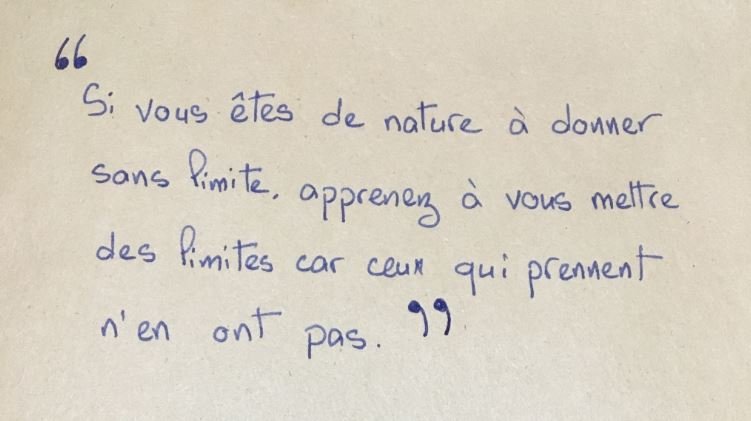 “
Si vous êtes de nature à donner
sans limite, apprenez à vous mettre
des limites car ceux qui prennent
n'en ont pas. ”